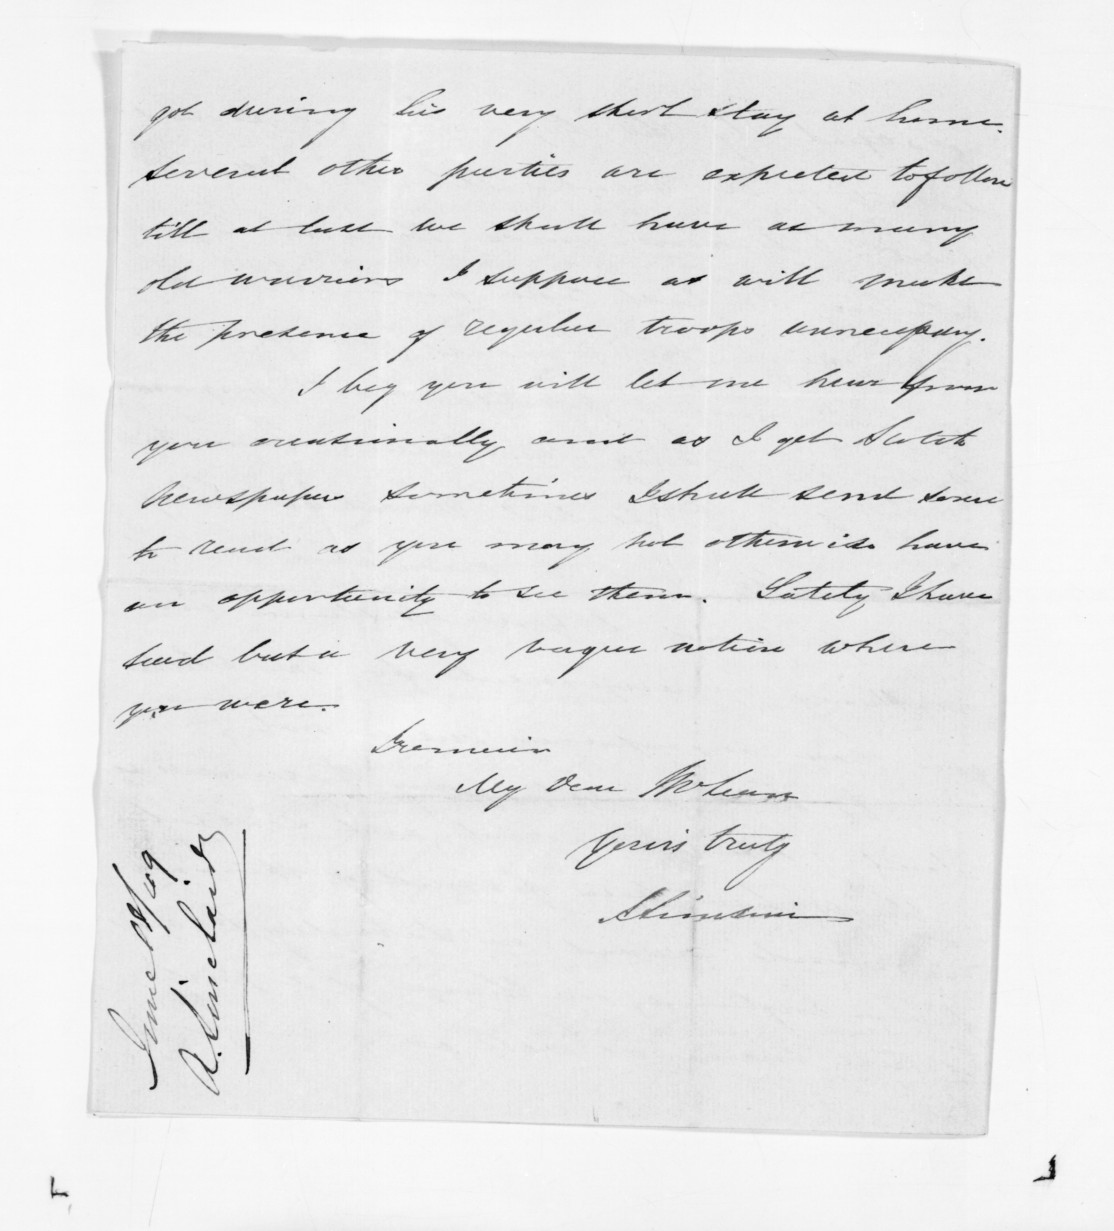 got during his very short stay at home.
several other parties are expected to follow
till at last we shall have as many
old warriors I suppose as will make
the presence of regular troops unnecessary.
I beg you will let me hear from
you occasionally and as I get Scotch
Newspapers sometimes I shall send some
to read as you may not otherwise have
an opportunity to see them. Lately I have
had but a very vague notion where
you were.
I remain
My Dear McLean
Yours truly
A Sinclair
June /69
A. Sinclair